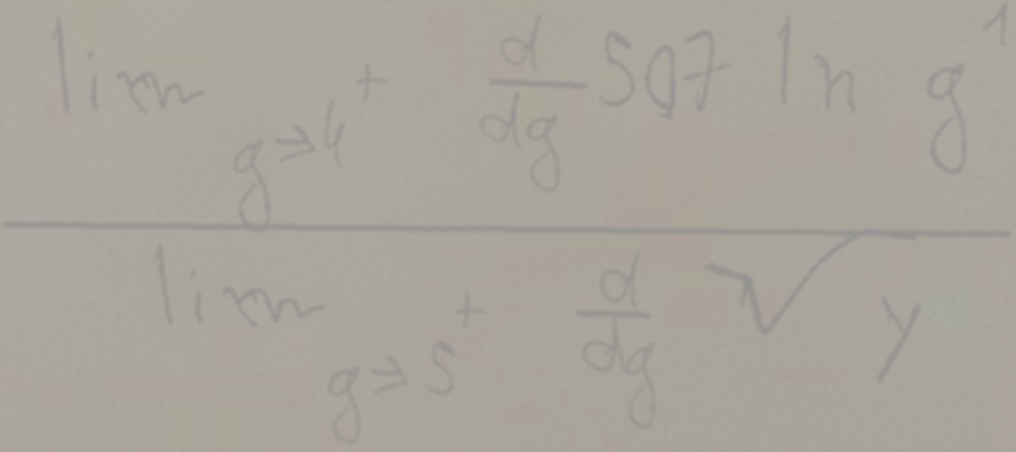 lim g→4⁺ d/dg 507 ln g¹
lim g→5⁺ d/dg √y